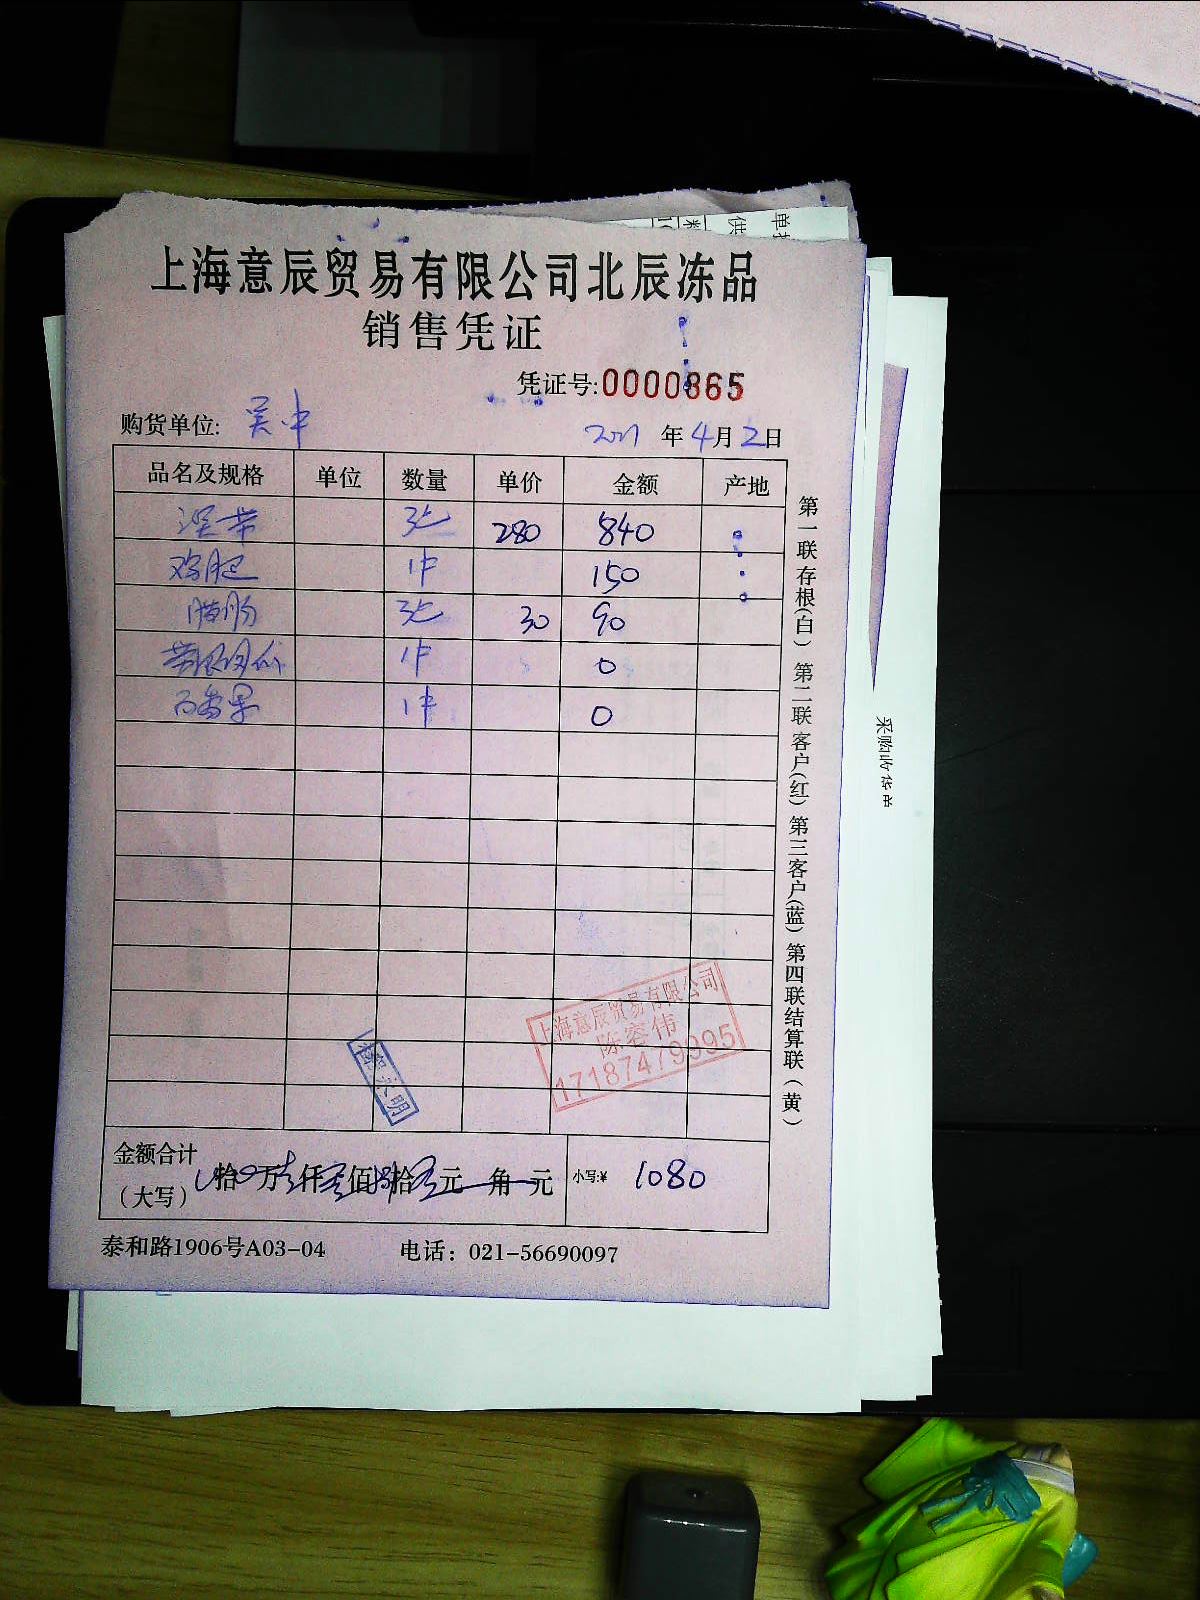 上海意辰贸易有限公司北辰冻品
销售凭证
凭证号:0000865
购货单位: 吴中
2021 年 4 月 2 日
品名及规格 单位 数量 单价 金额 产地
280 840
鸡肥 1件 150
腊肠 30 90
1件 0
百香果 1件 0
上海意辰贸易有限公司
陈容伟
17187479995
永明
金额合计
(大写) 拾 万 仟 佰 拾 元 角 元 小写:¥ 1080
泰和路1906号A03-04 电话：021-56690097
第一联存根(白) 第二联客户(红) 第三客户(蓝) 第四联结算联(黄)
采购收货单